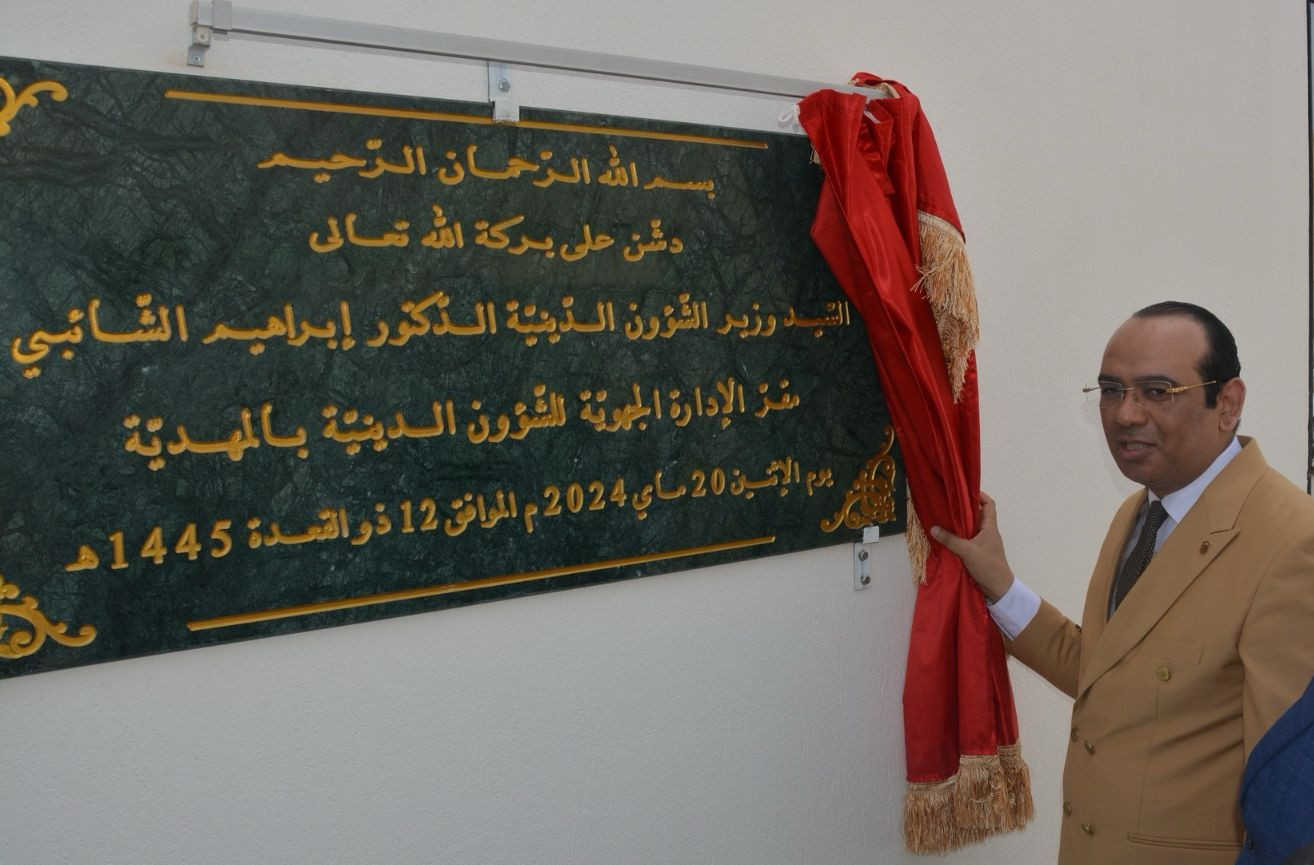 بسم الله الرّحمان الرّحيم
دشّن على بركة الله تعالى
السّيد وزير الشّؤون الدّينيّة الدّكتور إبراهيم الشّائبي
مقرّ الإدارة الجهويّة للشّؤون الدينيّة بالمهديّة
يوم الإثنين 20 ماي 2024 م الموافق 12 ذو القعدة 1445 هـ